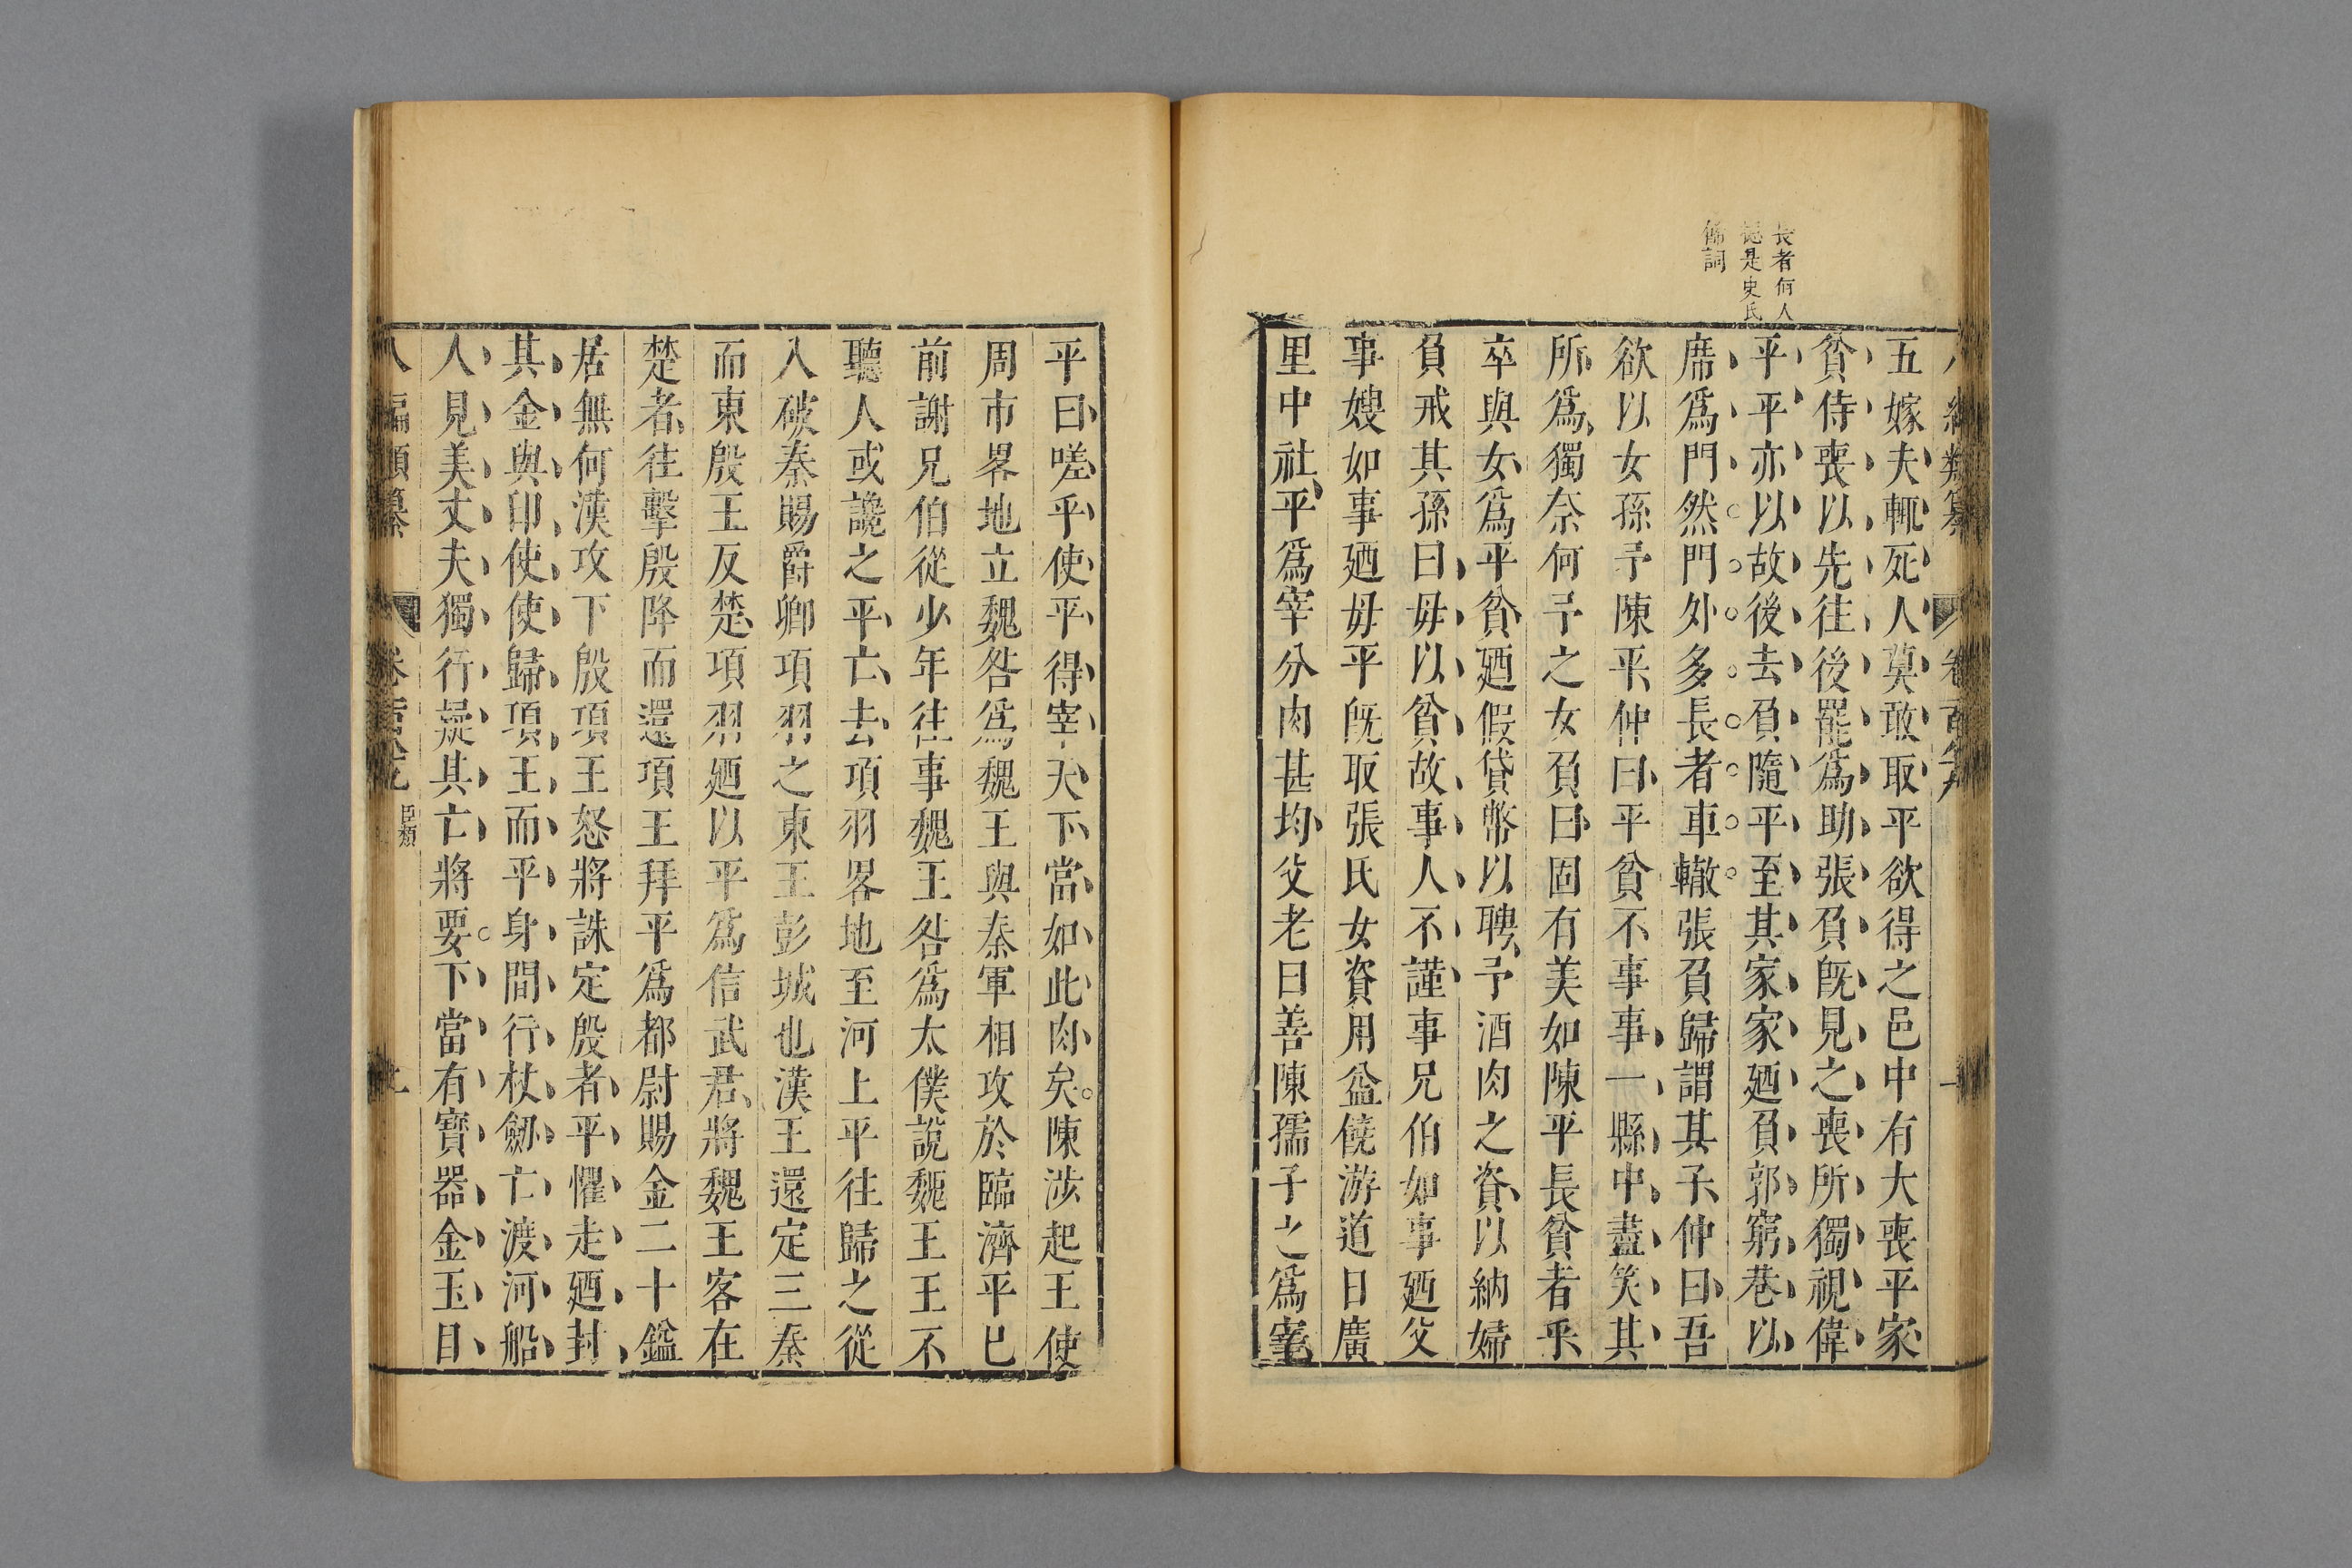 長者何人
是史氏
詞
五嫁夫輒死人莫敢取平欲得之邑中有大喪平家
貧侍喪以先往後罷爲助張負既見之喪所獨視偉
平平亦以故後去負隨平至其家家廼負郭窮巷以
席爲門然門外多長者車轍張負歸謂其子仲曰吾
欲以女孫予陳平仲曰平貧不事事一縣中盡笑其
所爲獨奈何予之女負曰固有美如陳平長貧者乎
卒與女爲平貧廼假貸幣以聘予酒肉之資以納婦
負戒其孫曰毋以貧故事人不謹事兄伯如事廼父
事嫂如事廼毋平既取張氏女資用益饒游道日廣
里中社平爲宰分肉甚均父老曰善陳孺子之爲宰
平曰嗟乎使平得宰天下當如此肉矣陳涉起王使
周市畧地立魏咎爲魏王與秦軍相攻於臨濟平已
前謝兄伯從少年往事魏王咎爲太僕說魏王王不
聽人或讒之平亡去項羽畧地至河上平往歸之從
入破秦賜爵卿項羽之東王彭城也漢王還定三秦
而東殷王反楚項羽廼以平爲信武君將魏王客在
楚者往擊殷降而還項王拜平爲都尉賜金二十鎰
居無何漢攻下殷項王怒將誅定殷者平懼走廼封
其金與印使使歸項王而平身間行杖劒亡渡河船
人見美丈夫獨行疑其亡將要下當有寶器金玉目
臣類